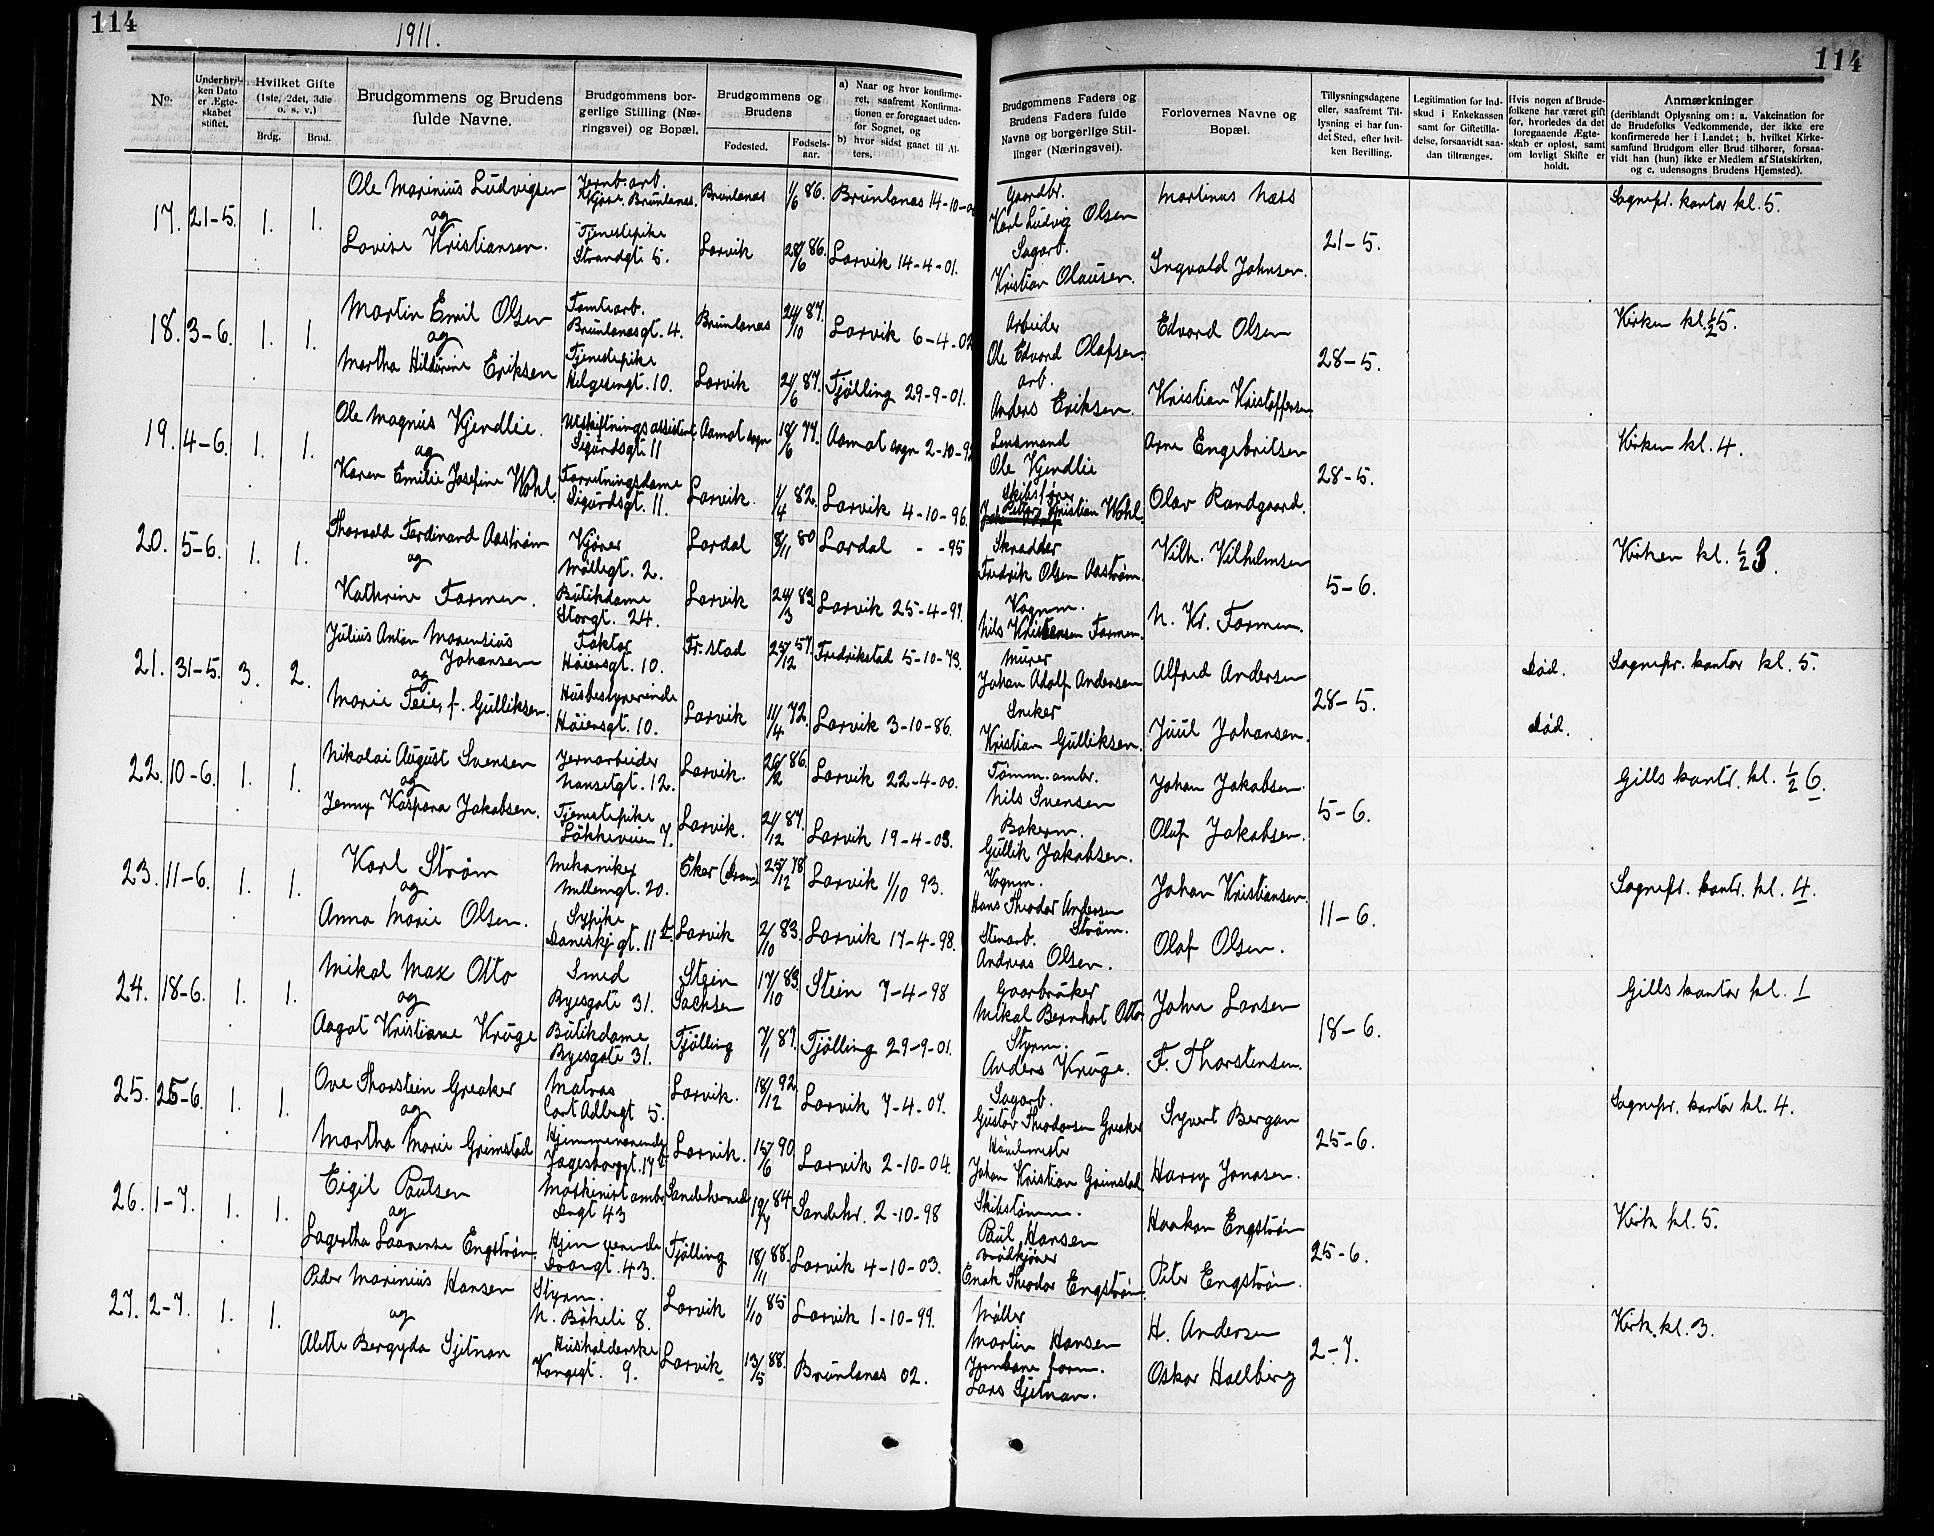 114
1911.
114
No.
Underhvilken Dato er Ægteskabet stiftet.
Hvilket Gifte (1ste, 2det, 3die o. s. v.)
Brdg. Brud.
Brudgommens og Brudens fulde Navne.
Brudgommens borgerlige Stilling (Næringsvei) og Bopæl.
Brudgommens og Brudens
Fødested. Fødselsaar.
a) Naar og hvor konfirmeret, saafremt Konfirmationen er foregaaet udenfor Sognet, og
b) hvor sidst gaaet til Alters.
Brudgommens Faders og Brudens Faders fulde Navne og borgerlige Stillinger (Næringsvei).
Forlovernes Navne og Bopæl.
Tillysningsdagene eller, saafremt Tillysning ei har fundet Sted, efter hvilken Bevilling.
Legitimation for Indskud i Enkekassen samt for Giftetilladelse, forsaavidt saadan tiltrænges.
Hvis nogen af Brudefolkene har været gift før, hvorledes da det foregaaende Ægteskab er opløst, samt om lovligt Skifte er holdt.
Anmærkninger
(deriblandt Oplysning om: a. Vakcination for de Brudefolks Vedkommende, der ikke ere konfirmerede her i Landet; b. hvilket Kirkesamfund Brudgom eller Brud tilhører, forsaavidt han (hun) ikke er Medlem af Statskirken, og c. udensogns Brudens Hjemsted).
17. 21-5. 1. 1. Ole Marinius Ludvigsen Jernb. arb. Brunlanæs 1/6 86. Brunlanæs 14-10-
og Brunlanæs.
Lovise Kristiansen. Tjenestepike Strandgt 5. Larvik 28/6 86. Larvik 14-4-01.
Gaardbr. Karl Ludvig Olsen Martinus Næss 21-5. Sognepr. kontor kl. 5.
Sagarb. Kristian Olausen. Ingvald Johnsen.
18. 3-6. 1. 1. Martin Emil Olsen Tomtearb. Brunlanæsgt. 4. Brunlanæs 24/10 87. Larvik 6-4-02
og
Martha Hildurine Eriksen Tjenestepike Helgesensgt. 10. Larvik 21/6 87. Tjølling 29-9-01.
Arbeider Ole Edvard Olafsen Edvard Olsen 28-5. Kirken kl. ½5.
arb. Anders Eriksen. Kristian Kristoffersen
19. 4-6. 1. 1. Ole Magnus Kjendlie. Utskiftningsassistent Sigurdsgt 11 Aamot sogn 18/6 77. Aamot sogn 2-10-92
og
Karen Emilie Josefine Wohl Forretningsdame Sigurdsgt. 11. Larvik. 1/4 82. Larvik 4-10-96.
Lensmand Ole Kjendlie Arne Engebritsen 28-5. Kirken kl. 4.
Skibsfører Kristian Wohl. Olav Randgaard.
20. 5-6. 1. 1. Thorvald Ferdinand Aastrøm Kjører Møllegt. 2. Lardal 8/11 80 Lardal - -95
og
Kathrine Farmen. Butikdame Storgt. 24. Larvik 24/3 83. Larvik 25-4-97.
Skrædder Fredrik Olsen Aastrøm. Vilh. Vilhelmsen 5-6. Kirken kl. ½3.
Vognm. Nils Kristensen Farmen. N. Kr. Farmen.
21. 31-5. 3. 2. Julius Anton Marensius Johansen Faktor Høiensgt. 10. Fr.stad 25/12 57. Fredrikstad 5-10-73.
og
Marie Feier f. Gulliksen. Husbestyrerinde Høiensgt. 10. Larvik 11/4 72. Larvik 3-10-86.
Murer Johan Adolf Andersen Alfred Andersen 28-5. Død. Sognepr. kontor kl. 5.
Sneker Kristian Gulliksen. Juul Johansen. Død.
22. 10-6. 1. 1. Nikolai August Svensen Jernarbeider Nansetgt. 12. Larvik. 26/2 86. Larvik 22-4-00.
og
Jenny Kaspara Jakobsen. Tjenestepike Løkkeveien 7. Larvik. 21/12 87. Larvik 19-4-03.
Tømm.ambr. Nils Svensen Johan Jakobsen. 5-6. Gills kontr. kl. ½6.
Bakerm. Gullik Jakobsen. Olaf Jakobsen.
23. 11-6. 1. 1. Karl Strøm Mekaniker Mellemgt. 20. Eker (Dram) 25/12 78 Larvik 1/10 93.
og
Anna Marie Olsen. Sypike gt. 11 b. Larvik 2/10 83. Larvik 17-4-98.
Vognm. Hans Theodor Andersen Strøm. Johan Kristiansen. 11-6. Sognepr. kontr. kl. 4.
Stenarb. Andreas Olsen. Olaf Olsen.
24. 18-6. 1. 1. Mikal Max Otto Smed Byesgate 31. Stein Sachsen 17/10 83. Stein 7-4-98
og
Aagot Kristiane Kruge Butikdame Byesgate 31. Tjølling 7/1 87. Tjølling 29-9-01.
Gaarbruker Mikal Bernhart Otto John Larsen 18-6. Gills kontor kl. 1
Styrm. Anders Kruge. F. Thorstensen.
25. 25-6. 1. 1. Ove Thorstein Greaker Matros Cort Adlergt 5. Larvik. 18/12 92. Larvik 7-4-07.
og
Martha Marie Grimstad Hjemmeværende Jægersborggt. 17 b Larvik. 15/6 90. Larvik 2-10-04.
Sagarb. Gustav Theodorsen Greaker Syvert Bergan 25-6. Sognepr. kontor kl. 4.
Johan Kristian Grimstad. Harry Jonasen.
26. 1-7. 1. 1. Eigil Paulsen Maskinist ambr. 43 Sandeherred 19/4 84 Sandehr. 2-10-98
og
Lagertha Laurense Engstrøm. Hjemværende 43. Tjølling 18/11 88. Larvik 4-10-03.
Skibstømm. Paul Hansen Haakon Engstrøm 25-6. Kirk kl. 5.
Brødkjører Enok Theodor Engstrøm. Peter Engstrøm.
27. 2-7. 1. 1. Peder Marinius Hansen Styrm. N. Bøkeli 8. Larvik 1/10 85 Larvik 1-10-99.
og
Alette Bergyda Sjetnan Husholderske Kongegt. 9. Larvik 13/5 88. Brunlanæs 02.
Møller Martin Hansen H. Andersen 2-7. Kirk. kl. 3.
Jernbane form. Lars Sjetnan. Oskar Hallberg